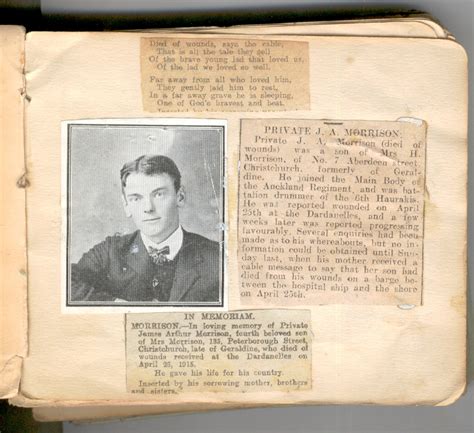 Died of wounds, says the cable,
That is all the tale they tell
Of the brave young lad that loved us,
Of the lad we loved so well.
Far away from all who loved him,
They gently laid him to rest,
In a far away grave he is sleeping,
One of God's bravest and best.
PRIVATE J. A. MORRISON.
Private J. A. Morrison (died of
wounds) was a son of Mrs H.
Morrison, of No. 7 Aberdeen street,
Christchurch, formerly of Geral-
dine. He joined the Main Body of
the Auckland Regiment, and was bat-
talion drummer of the 6th Haurakis.
He was reported wounded on April
25th at the Dardanelles, and a few
weeks later was reported progressing
favourably. Several enquiries had been
made as to his whereabouts, but no in-
formation could be obtained until Sun-
day last, when his mother received a
cable message to say that her son had
died from his wounds on a barge be-
tween the hospital ship and the shore
on April 25th.
IN MEMORIAM.
MORRISON.—In loving memory of Private
James Arthur Morrison, fourth beloved son
of Mrs Morrison, Peterborough Street,
Christchurch, late of Geraldine, who died of
wounds received at the Dardanelles on
April 25, 1915.
He gave his life for his country.
Inserted by his sorrowing mother, brothers
and sisters.